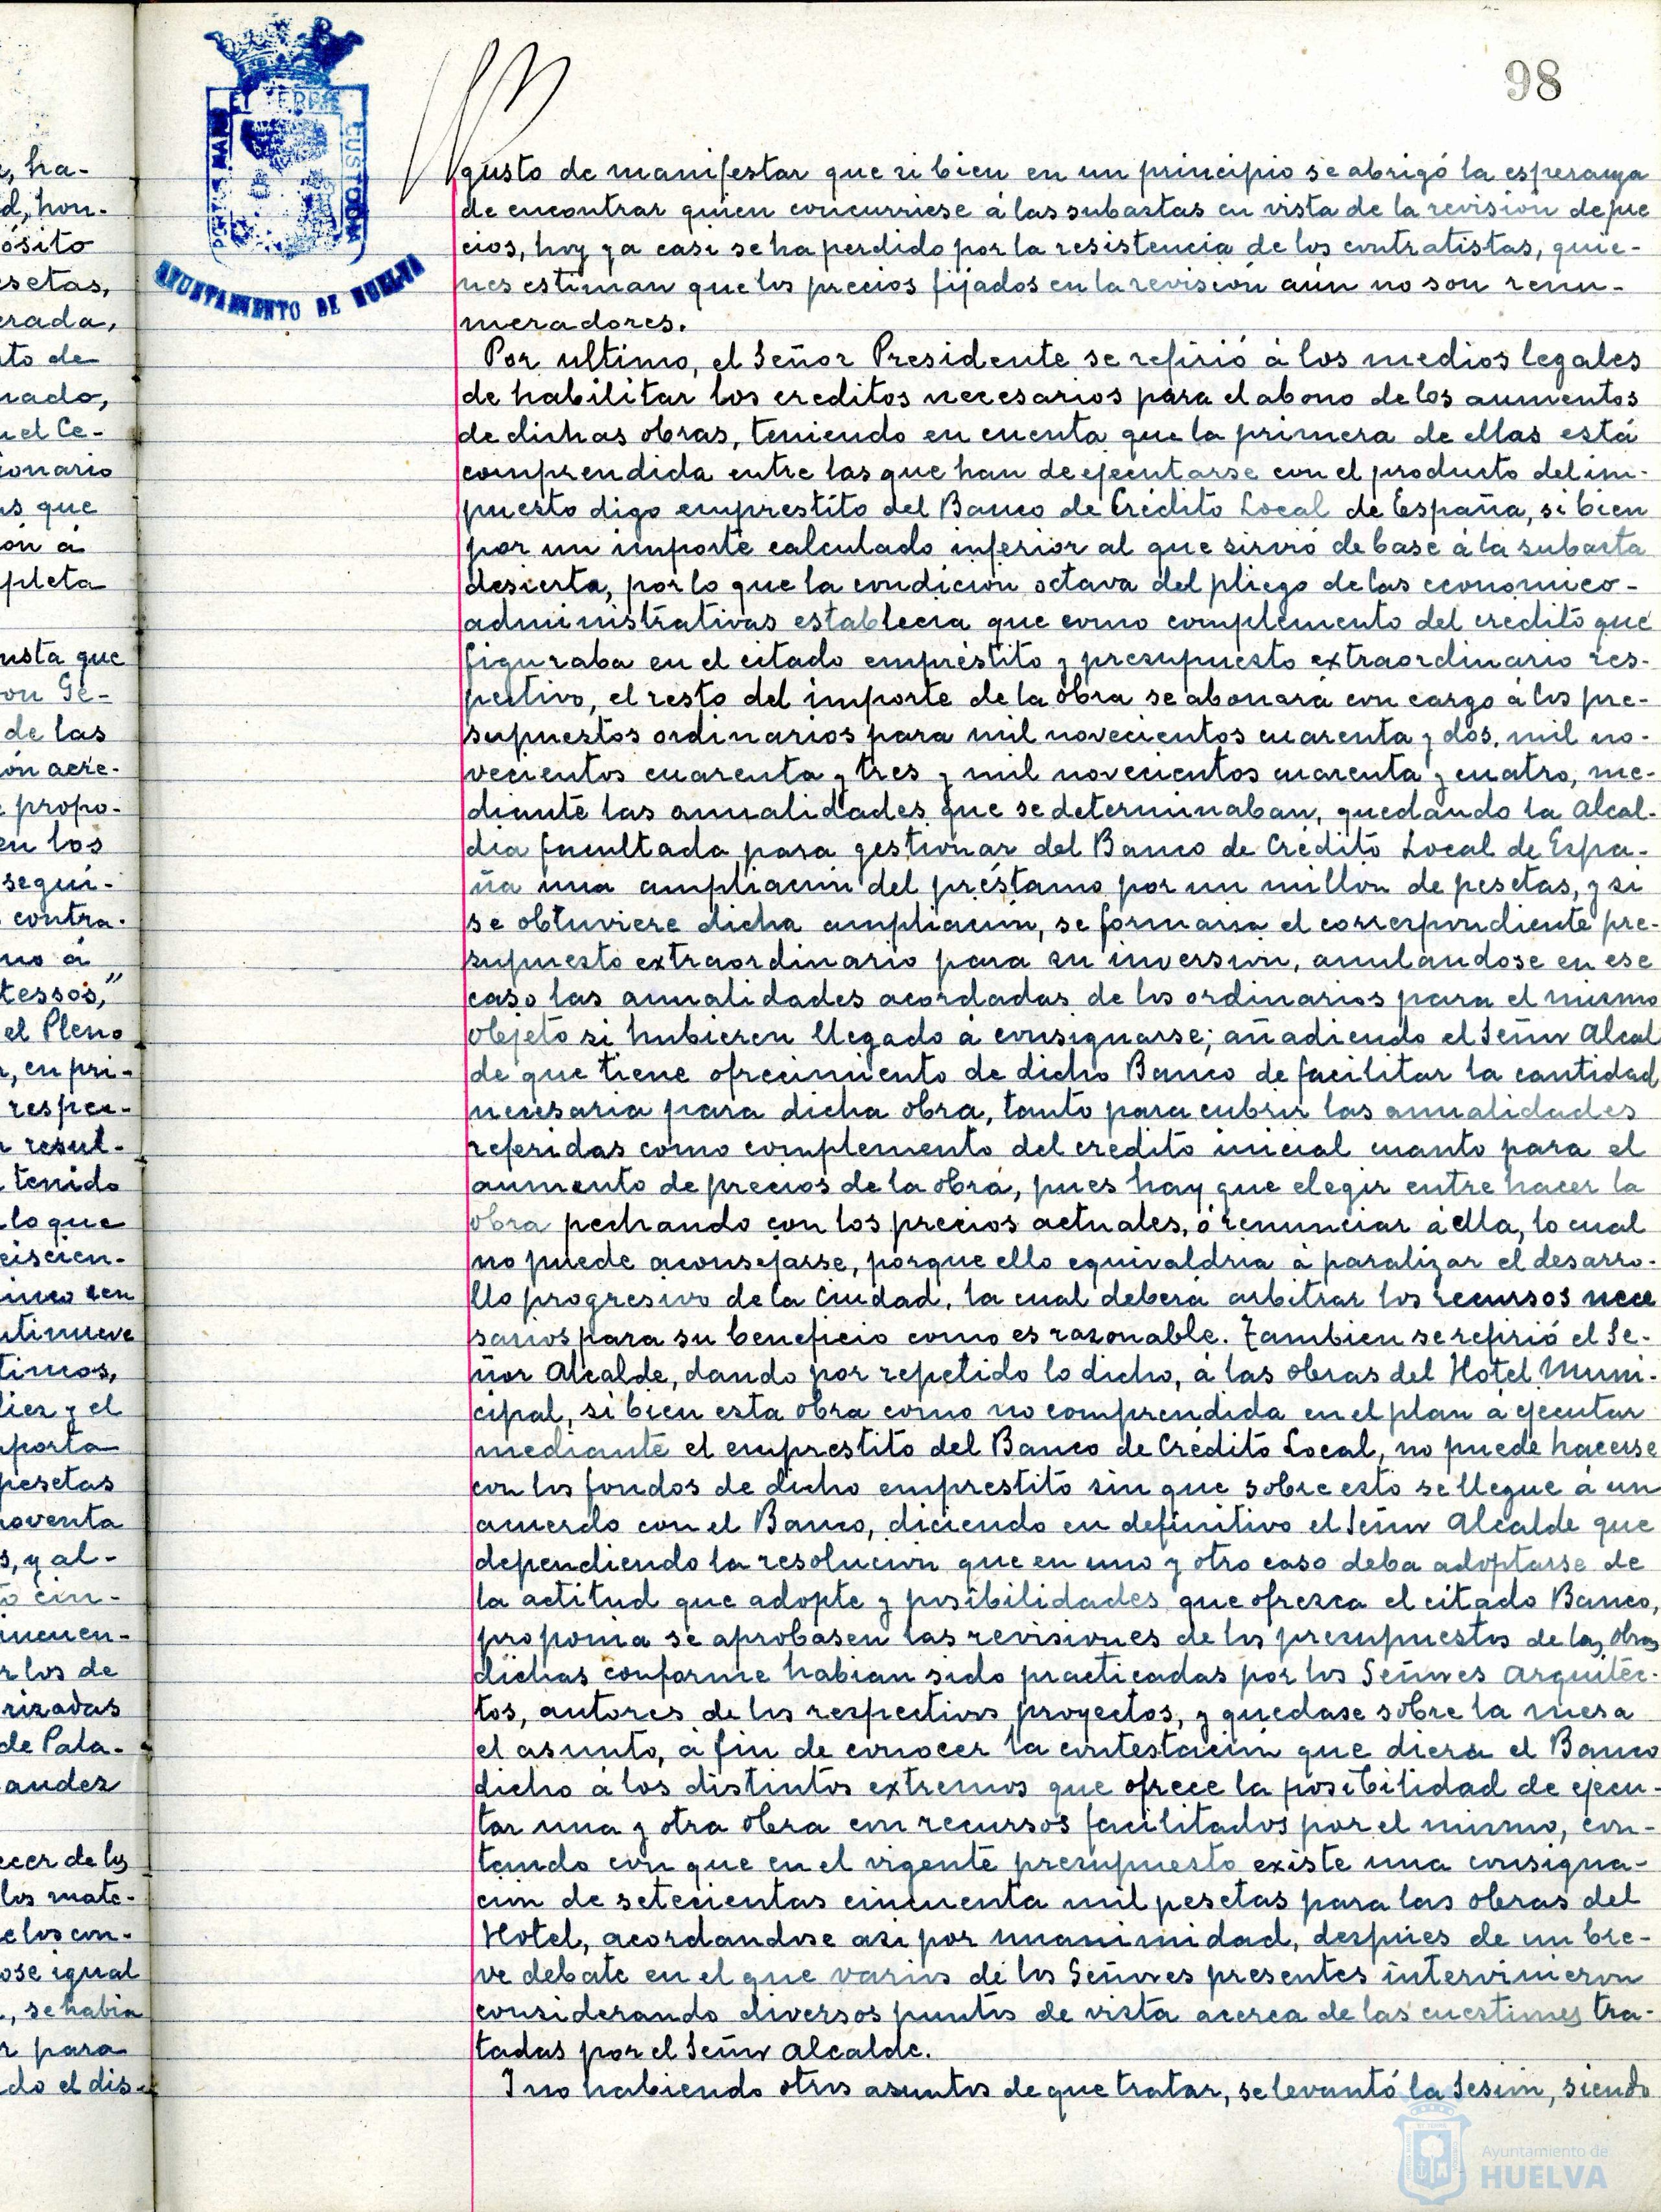 98
PORTUS MARIS
ET TERRE
CUSTODIA
AYUNTAMIENTO DE HUELVA
gusto de manifestar que si bien en un principio se abrigó la esperanza
de encontrar quien concurriese á las subastas en vista de la revisión de pre
cios, hoy ya casi se ha perdido por la resistencia de los contratistas, quie-
nes estiman que los precios fijados en la revisión aún no son renu-
meradores.
Por ultimo, el Señor Presidente se refirió á los medios legales
de habilitar los creditos necesarios para el abono de los aumentos
de dichas obras, teniendo en cuenta que la primera de ellas está
comprendida entre las que han de ejecutarse con el producto del im-
puesto digo emprestito del Banco de Crédito Local de España, si bien
por un importe calculado inferior al que sirvió de base á la subasta
desierta, por lo que la condición octava del pliego de las economico-
administrativas establecia que como complemento del credito que
figuraba en el citado empréstito y presupuesto extraordinario res-
pectivo, el resto del importe de la obra se abonará con cargo á los pre-
supuestos ordinarios para mil novecientos cuarenta y dos, mil no-
vecientos cuarenta y tres y mil novecientos cuarenta y cuatro, me-
diante las anualidades que se determinaban, quedando la Alcal-
dia facultada para gestionar del Banco de Crédito Local de Espa-
ña una ampliación del préstamo por un millon de pesetas, y si
se obtuviere dicha ampliación, se formaria el correspondiente pre-
supuesto extraordinario para su inversión, anulandose en ese
caso las anualidades acordadas de los ordinarios para el mismo
objeto si hubieren llegado á consignarse; añadiendo el Señor Alcal
de que tiene ofrecimiento de dicho Banco de facilitar la cantidad
necesaria para dicha obra, tanto para cubrir las anualidades
referidas como complemento del credito inicial cuanto para el
aumento de precios de la obra, pues hay que elegir entre hacer la
obra pechando con los precios actuales, ó renunciar á ella, lo cual
no puede aconsejarse, porque ello equivaldria á paralizar el desarro-
llo progresivo de la Ciudad, la cual deberá arbitrar los recursos nece
sarios para su beneficio como es razonable. Tambien se refirió el Se-
ñor Alcalde, dando por repetido lo dicho, á las obras del Hotel Muni-
cipal, si bien esta obra como no comprendida en el plan á ejecutar
mediante el emprestito del Banco de Crédito Local, no puede hacerse
con los fondos de dicho emprestito sin que sobre esto se llegue á un
acuerdo con el Banco, diciendo en definitivo el Señor Alcalde que
dependiendo la resolución que en uno y otro caso deba adoptarse de
la actitud que adopte y posibilidades que ofrezca el citado Banco,
proponia se aprobasen las revisiones de los presupuestos de las obras
dichas conforme habian sido practicadas por los Señores Arquitéc-
tos, autores de los respectivos proyectos, y quedase sobre la mesa
el asunto, á fin de conocer la contestación que diera el Banco
dicho á los distintos extremos que ofrece la posibilidad de ejecu-
tar una y otra obra con recursos facilitados por el mismo, con-
tando con que en el vigente presupuesto existe una consigna-
ción de setecientas cincuenta mil pesetas para las obras del
Hotel, acordandose asi por unanimidad, despues de un bre-
ve debate en el que varios de los Señores presentes intervinieron
considerando diversos puntos de vista acerca de las cuestiones tra-
tadas por el Señor Alcalde.
Y no habiendo otros asuntos de que tratar, se levantó la Sesión, siendo
Ayuntamiento de
HUELVA